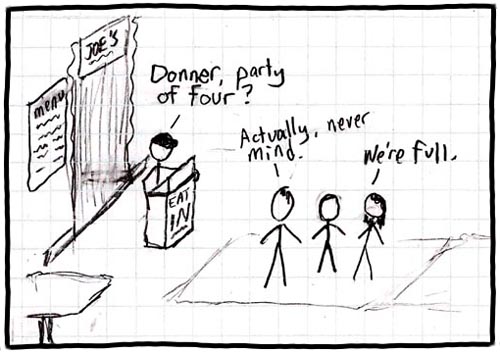 JOE'S
menu
Donner, party
of four?
Actually, never
mind.
We're full.
EAT
IN